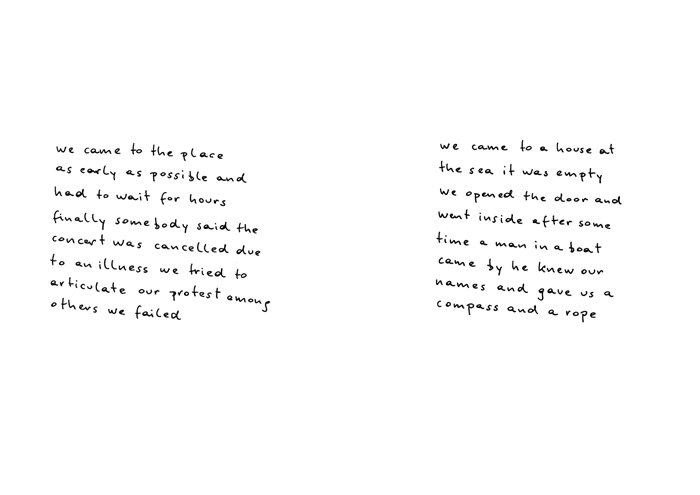 we came to the place
as early as possible and
had to wait for hours
finally somebody said the
concert was cancelled due
to an illness we tried to
articulate our protest among
others we failed
we came to a house at
the sea it was empty
we opened the door and
went inside after some
time a man in a boat
came by he knew our
names and gave us a
compass and a rope